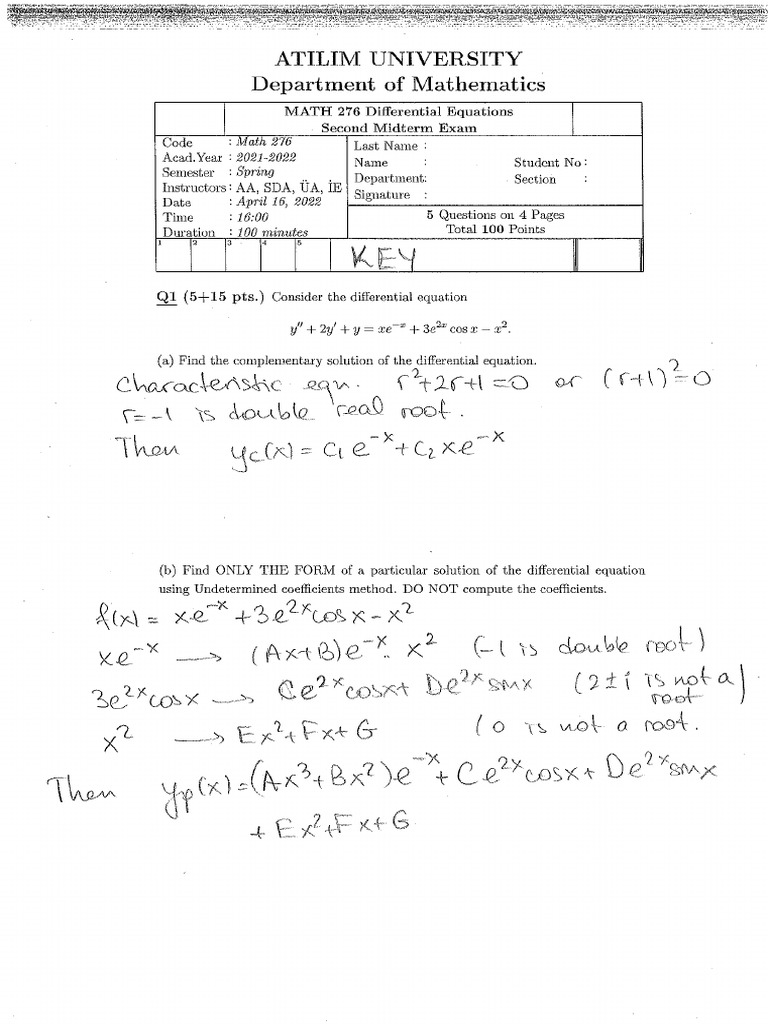 ATILIM UNIVERSITY
Department of Mathematics
MATH 276 Differential Equations
Second Midterm Exam
Code : Math 276
Acad.Year : 2021-2022
Semester : Spring
Instructors : AA, SDA, ÜA, İE
Date : April 16, 2022
Time : 16:00
Duration : 100 minutes
Last Name :
Name : Student No :
Department: Section :
Signature :
5 Questions on 4 Pages
Total 100 Points
1 2 3 4 5
KEY
Q1 (5+15 pts.) Consider the differential equation
y″ + 2y′ + y = xe⁻ˣ + 3e²ˣ cos x − x².
(a) Find the complementary solution of the differential equation.
Characteristic eqn. r²+2r+1=0 or (r+1)²=0
r=-1 is double real root.
Then yc(x) = c₁e⁻ˣ + c₂xe⁻ˣ
(b) Find ONLY THE FORM of a particular solution of the differential equation
using Undetermined coefficients method. DO NOT compute the coefficients.
f(x) = x.e⁻ˣ + 3e²ˣcosx - x²
xe⁻ˣ → (Ax+B)e⁻ˣ. x² (-1 is double root)
3e²ˣcosx → Ce²ˣcosx+ De²ˣsinx (2±i is not a root)
x² → Ex²+Fx+G (0 is not a root.
Then yp(x)=(Ax³+Bx²)e⁻ˣ+Ce²ˣcosx+De²ˣsinx
+ Ex²+Fx+G